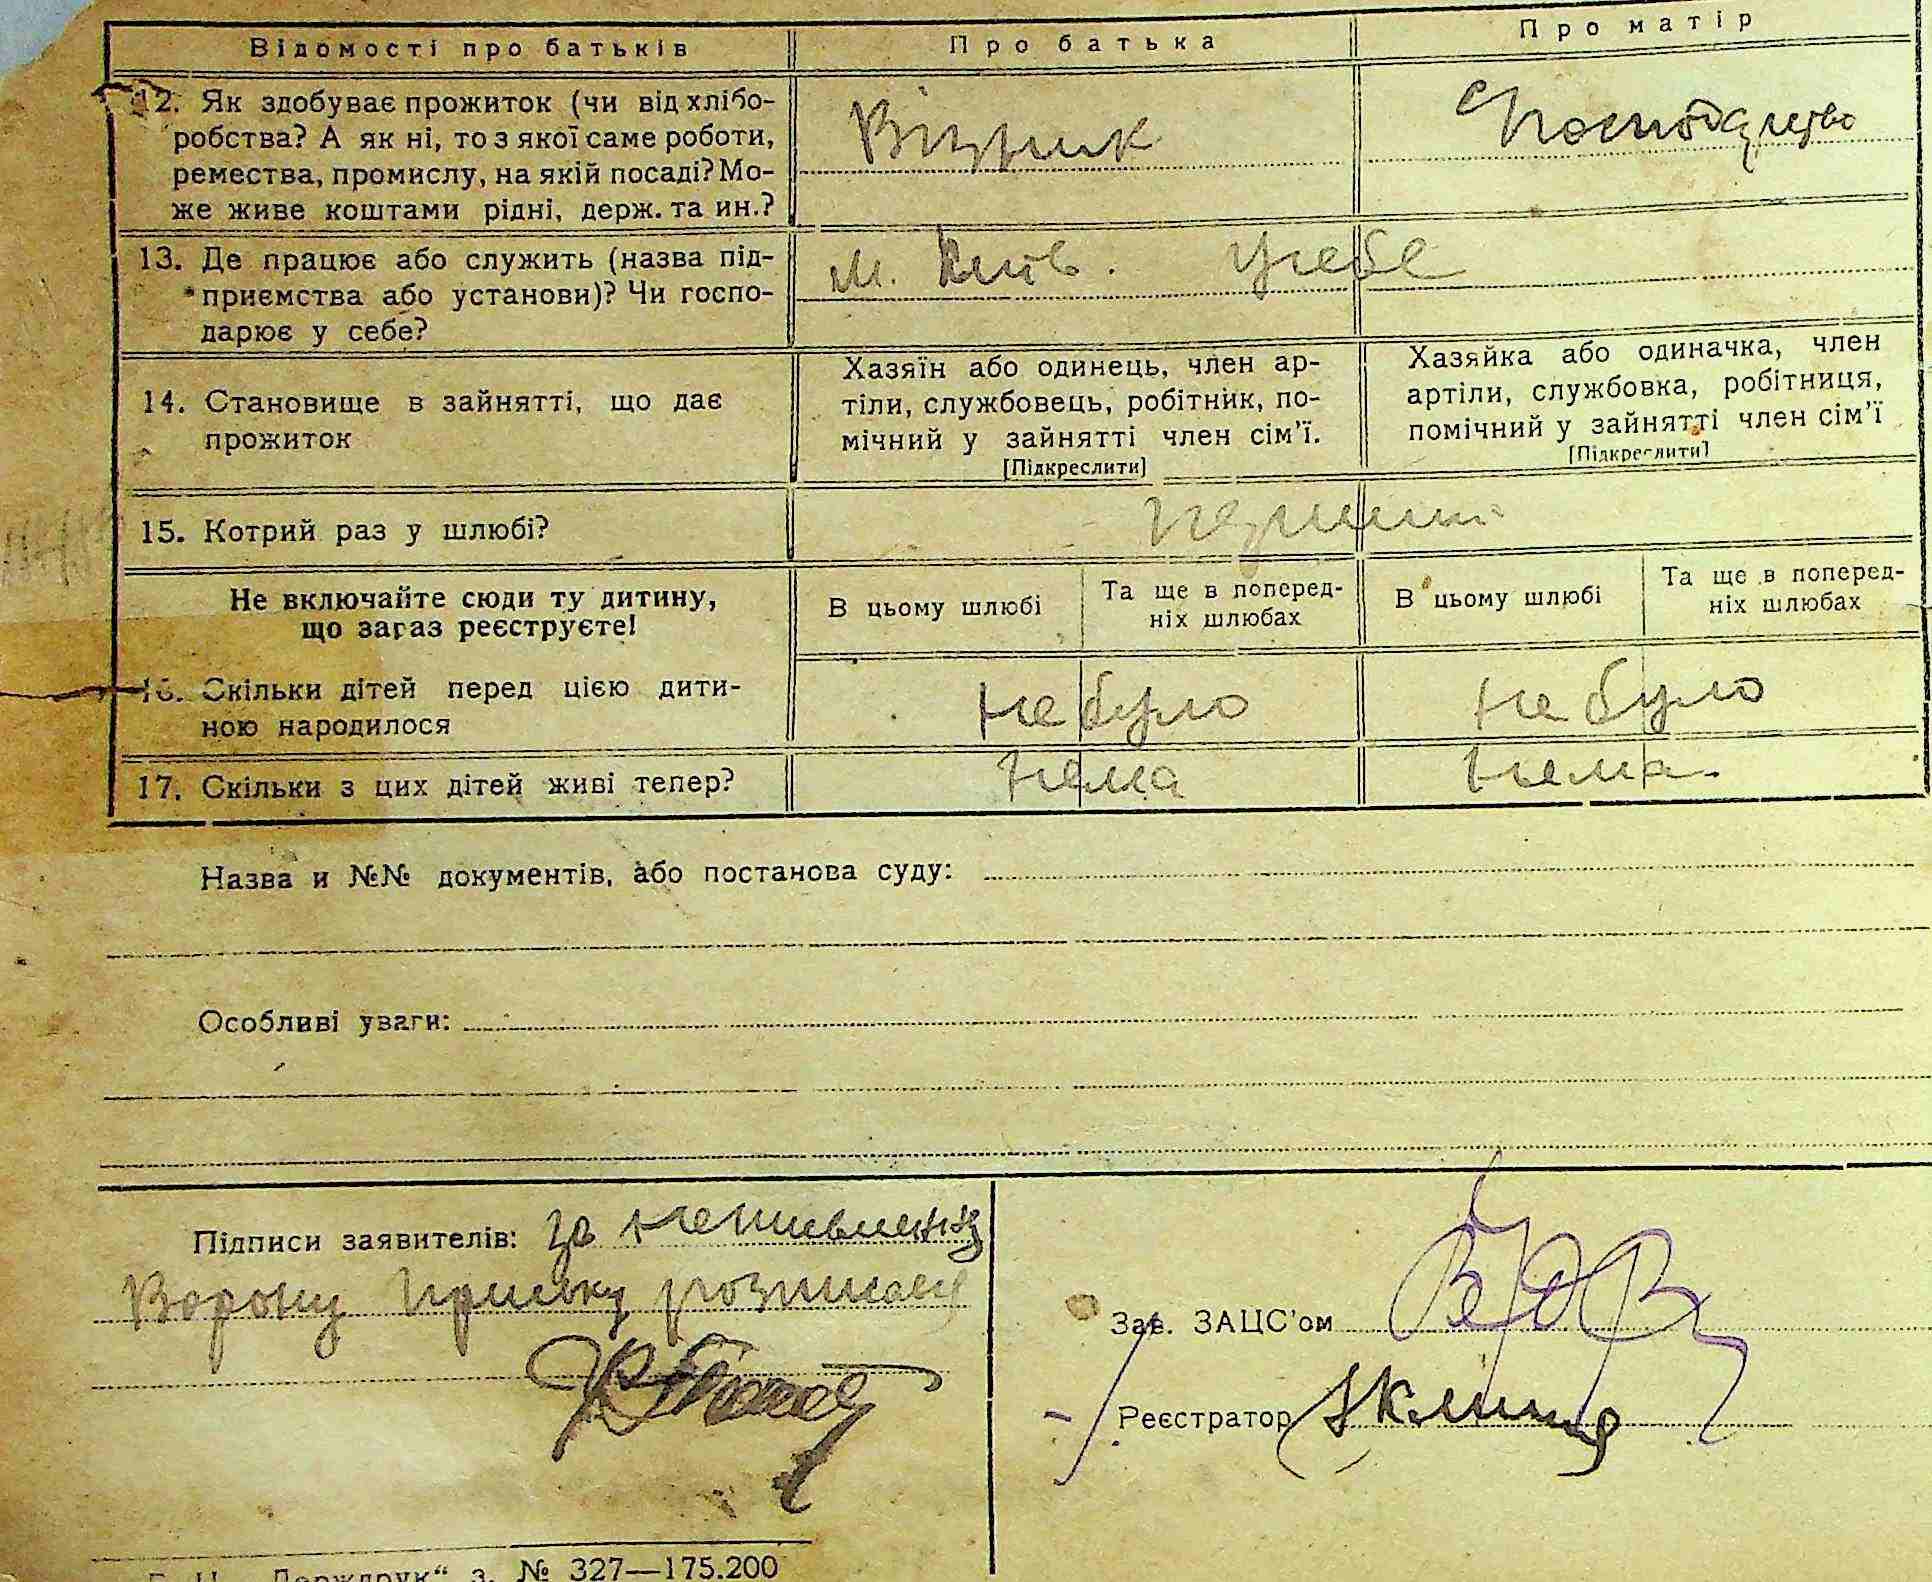 Відомості про батьків Про батька Про матір
12. Як здобуває прожиток (чи від хлібо-
робства? А як ні, то з якої саме роботи,
ремества, промислу, на якій посаді? Мо-
же живе коштами рідні, держ. та ин.?
Візник
13. Де працює або служить (назва під-
приємства або установи)? Чи госпо-
дарює у себе?
м. Київ. У себе
14. Становище в зайнятті, що дає
прожиток
Хазяїн або одинець, член ар-
тіли, службовець, робітник, по-
мічний у зайнятті член сім'ї.
[Підкреслити]
Хазяйка або одиначка, член
артіли, службовка, робітниця,
помічний у зайнятті член сім'ї
[Підкреслити]
15. Котрий раз у шлюбі?
Не включайте сюди ту дитину,
що зараз реєструєте!
В цьому шлюбі
Та ще в поперед-
ніх шлюбах
В цьому шлюбі
Та ще в поперед-
ніх шлюбах
16. Скільки дітей перед цією дити-
ною народилося
не було не було
17. Скільки з цих дітей живі тепер? Нема Нема.
Назва и №№ документів, або постанова суду:
Особливі уваги:
Підписи заявителів: за неписьменну
Ворону розписався
Зав. ЗАЦС'ом
Реєстратор
Держдрук“ з. № 327—175.200